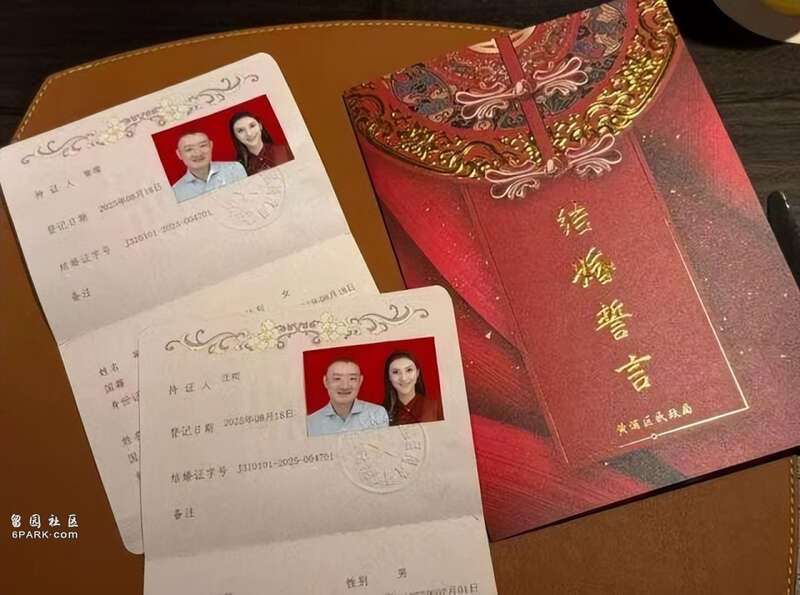 持证人
登记日期 2025年08月18日
结婚证字号 J310101-2025-004701
备注
性别 女
08月18日
姓名
国籍
身份证
姓名
国
持证人
登记日期 2025年08月18日
结婚证字号 J310101-2025-004701
备注
性别 男
07月01日
结婚誓言
黄浦区民政局
留园社区
6PARK.com